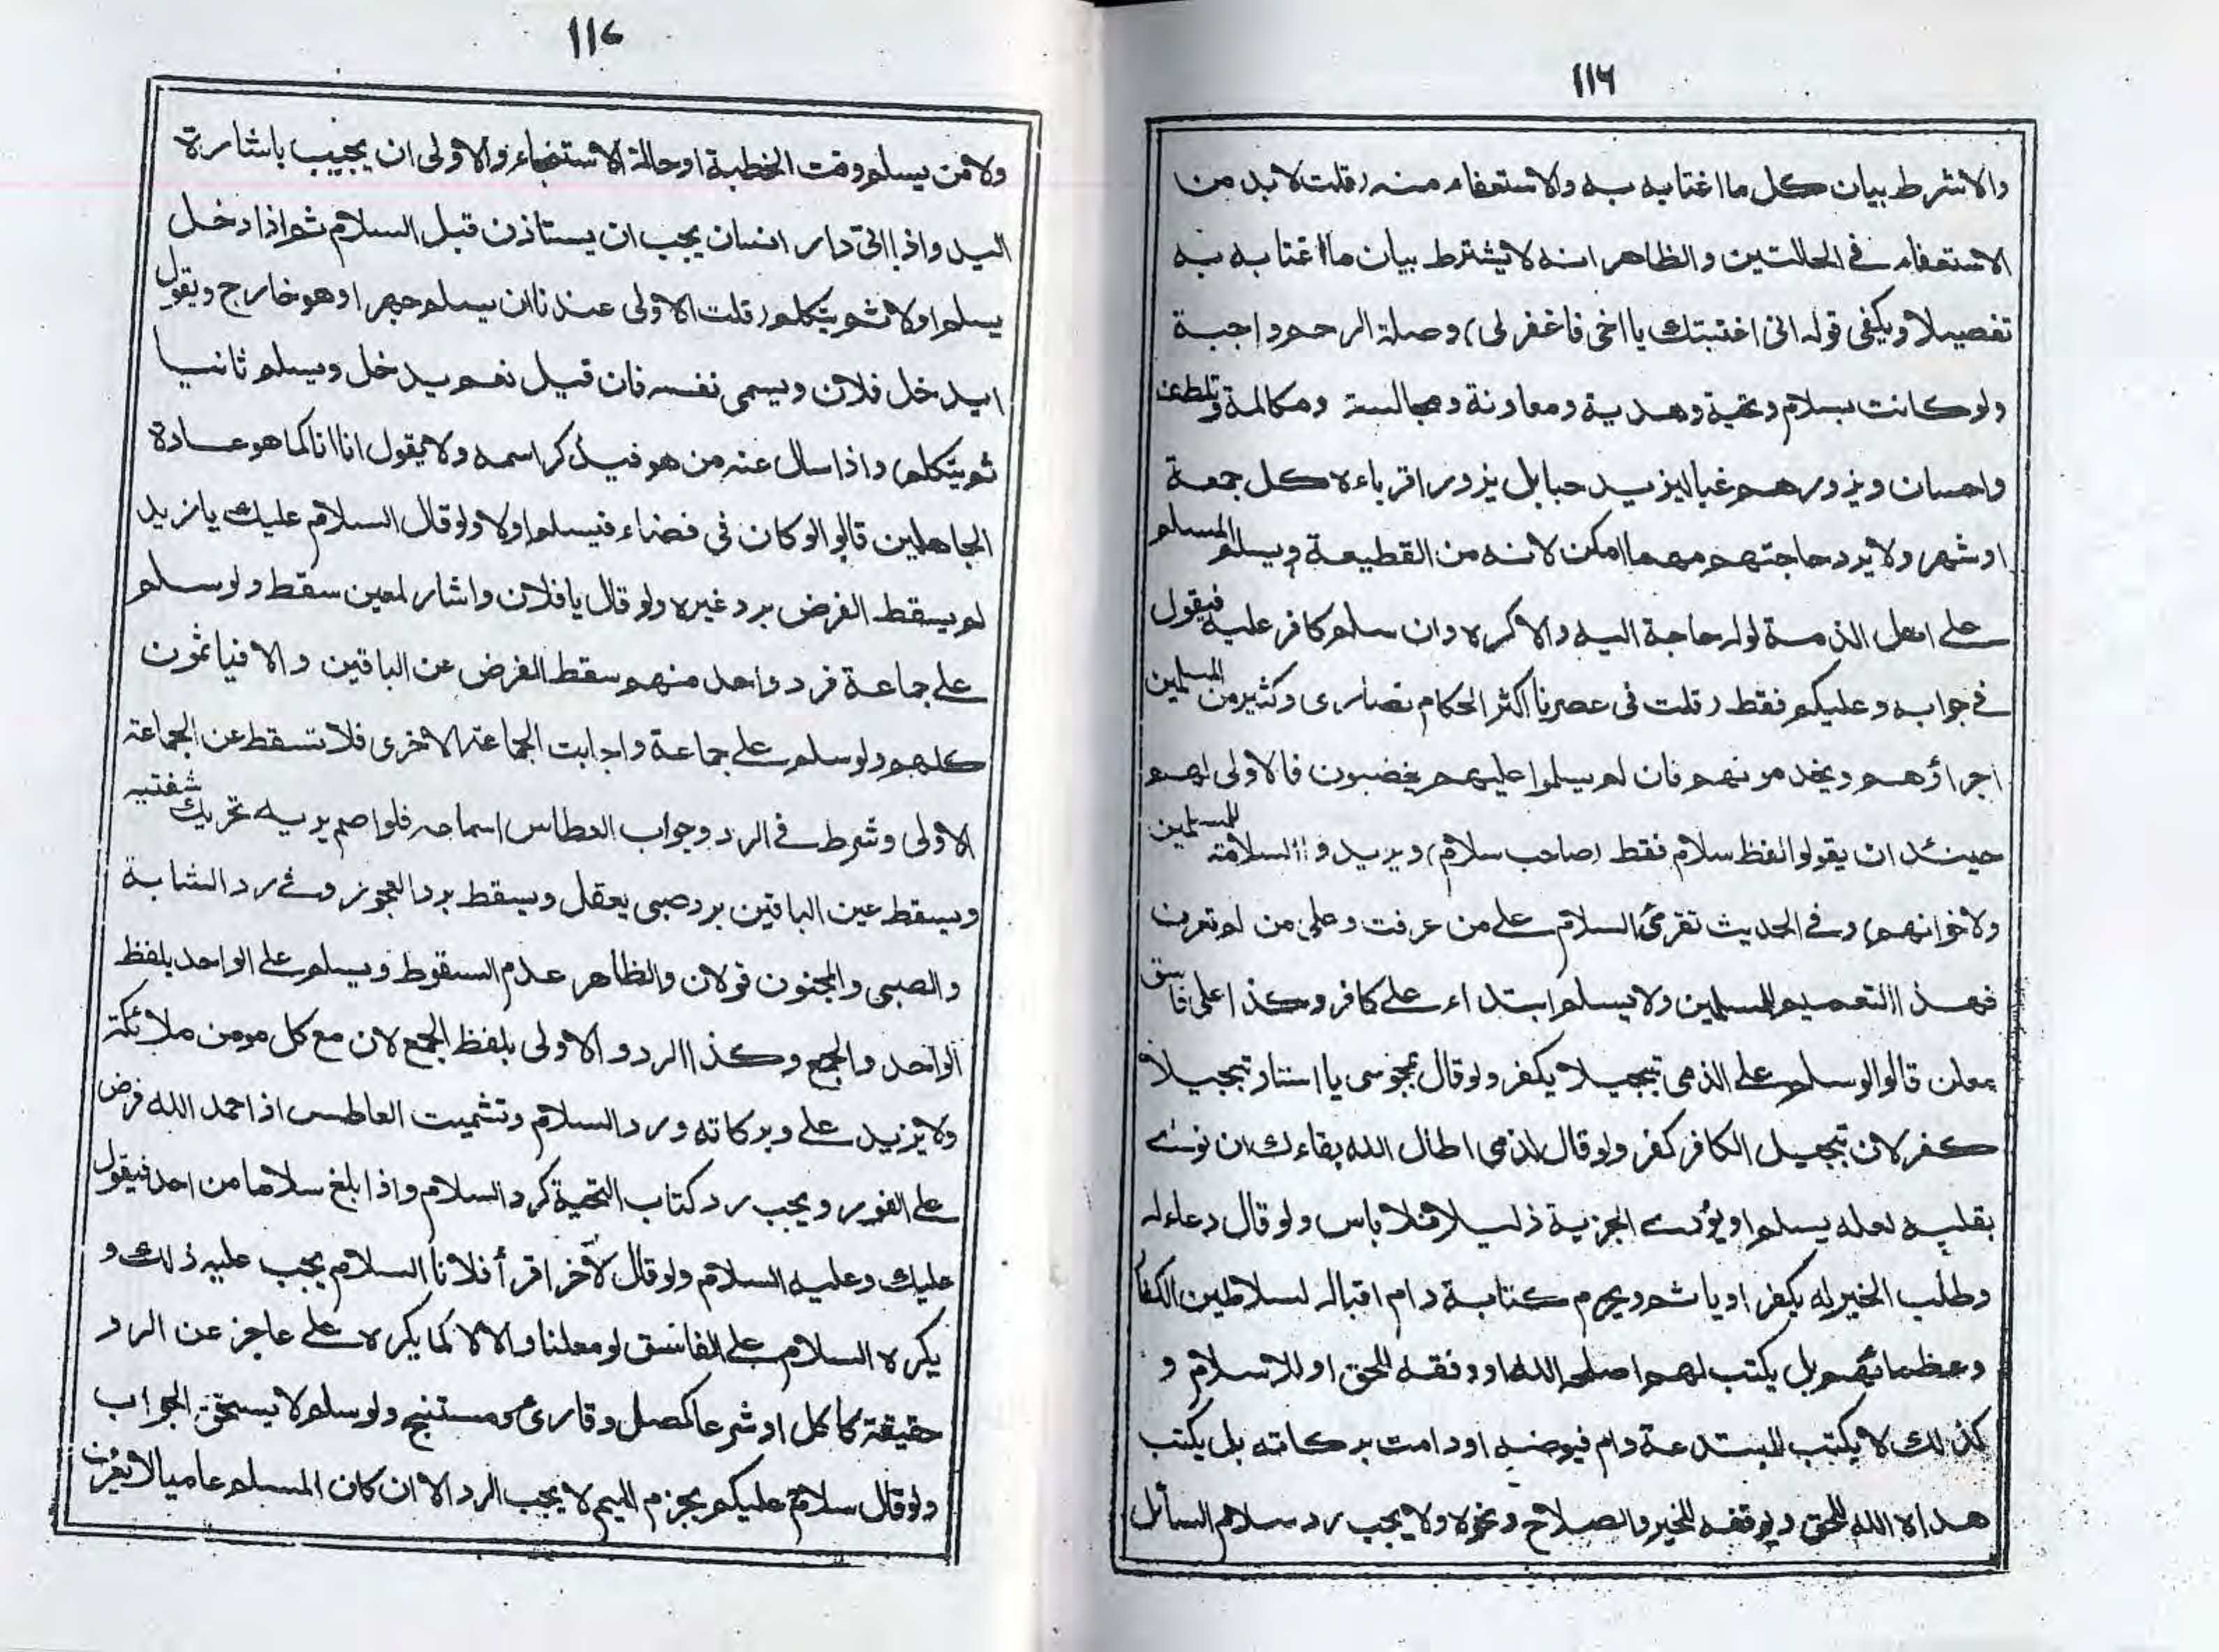 ١١٦
والا شرط بيان كل ما اغتابه به والاستعفاء منه (قلت لا بد من
الاستعفاء في الحالتين والظاهر انه لا يشترط بيان ما اغتابه به
تفصيلا ويكفى قوله انى اغتبتك يا اخى فاغفر لى) وصلة الرحم واجبة
ولو كانت بسلام وتحية وهدية ومعاونة ومجالسة ومكالمة وتلطف
واحسان ويزورهم غبا ليزيد حبا بل يزور اقرباءه كل جمعة
او شهر ولا يرد حاجتهم مهما امكن لانه من القطيعة ويسلم المسلم
على اهل الذمة لو له حاجة اليه والا كره وان سلم كافر عليه فيقول
في جوابه وعليكم فقط (قلت فى عصرنا اكثر الحكام نصارى وكثير من المسلمين
اجراؤهم ويخدمونهم فان لم يسلموا عليهم يغضبون فالاولى لهم
حينئذ ان يقولوا لفظ سلام فقط (صاحب سلام) ويريدوا السلامة للمسلمين
ولاخوانهم) وفي الحديث تقرئ السلام على من عرفت وعلى من لم تعرف
فهذا التعميم للمسلمين ولا يسلم ابتداء على كافر وكذا على فاسق
معلن قالوا لو سلم على الذمى تبجيلا يكفر ولو قال لمجوسى يا استاد تبجيلا
كفر لان تبجيل الكافر كفر ولو قال لذمى اطال الله بقاءك ان نوى
بقلبه لعله يسلم او يؤدى الجزية ذليلا فلا باس ولو قال دعاء له
وطلب الخير له يكفر او ياثم ويحرم كتابة دام اقباله لسلاطين الكفا
وعظمائهم بل يكتب لهم اصلحه الله او وفقه للحق او للاسلام و
كذلك لا يكتب للمبتدعة دام فيوضه او دامت بركاته بل يكتب
هداه الله للحق ويوفقه للخير والصلاح ونحوه ولا يجب رد سلام السائل
١١٧
ولا من يسلم وقت الخطبة او حالة الاستنجاء والاولى ان يجيب باشارة
اليد واذا اتى دار انسان يجب ان يستاذن قبل السلام ثم اذا دخل
يسلم اولا ثم يتكلم (قلت الاولى عندنا ان يسلم جهرا وهو خارج ويقول
ايدخل فلان ويسمى نفسه فان قيل نعم يدخل ويسلم ثانيا
ثم يتكلم) واذا سال عنه من هو فيذكر اسمه ولا يقول انا انا كما هو عادة
الجاهلين قالوا لو كان في فضاء فيسلم اولا ولو قال السلام عليك يا زيد
لم يسقط الفرض برد غيره ولو قال يا فلان واشار لمعين سقط ولو سلم
على جماعة فرد واحد منهم سقط الفرض عن الباقين والا فياثمون
كلهم ولو سلم على جماعة واجابت الجماعة الاخرى فلا تسقط عن الجماعة
الاولى وشرط في الرد وجواب العطاس اسماعه فلو اصم يريه تحريك شفتيه
ويسقط عن الباقين برد صبى يعقل ويسقط برد العجوز وفى رد الشابة
والصبى والمجنون قولان والظاهر عدم السقوط ويسلم على الواحد بلفظ
الواحد والجمع وكذا الرد و الاولى بلفظ الجمع لان مع كل مومن ملائكة
ولا يزيد على وبركاته ورد السلام وتشميت العاطس اذا حمد الله فرض
على الفور ويجب رد كتاب التحية كرد السلام واذا بلغ سلاما من احد فيقول
عليك وعليه السلام ولو قال لآخر اقرأ فلانا السلام يجب عليه ذلك و
يكره السلام على الفاسق لو معلنا والا لا كما يكره على عاجز عن الرد
حقيقة كاكل او شرعا كمصل وقارئ ومستنج ولو سلم لا يستحق الجواب
ولو قال سلام عليكم بجزم الميم لا يجب الرد الا ان كان المسلم عاميا لا يعرف